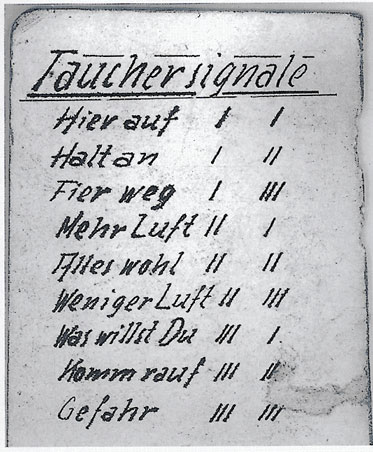 Tauchersignale
Hier auf I I
Halt an I II
Fier weg I III
Mehr Luft II I
Alles wohl II II
Weniger Luft II III
Was willst Du III I
Komm rauf III II
Gefahr III III